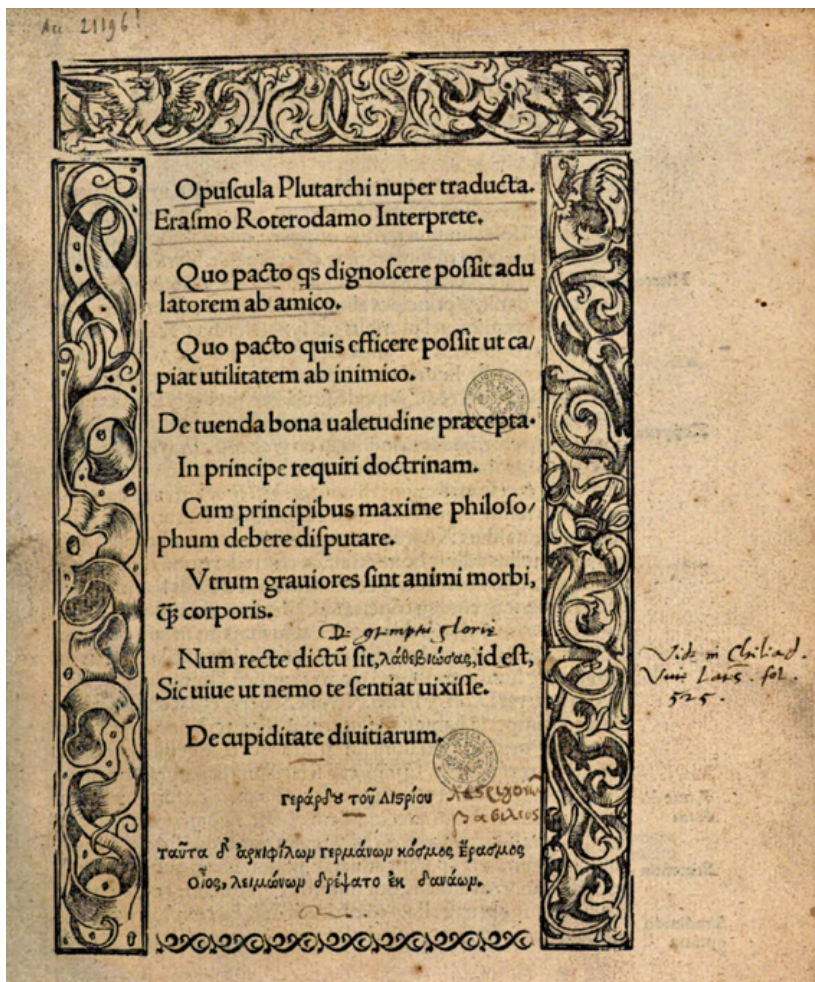 Acc 21196!
Opuſcula Plutarchi nuper traducta.
Eraſmo Roterodamo Interprete.
Quo pacto qs dignoſcere poſſit adu
latorem ab amico.
Quo pacto quis efficere poſſit ut ca/
piat utilitatem ab inimico.
De tuenda bona ualetudine præcepta.
In principe requiri doctrinam.
Cum principibus maxime philoſo/
phum debere diſputare.
Vtrum grauiores ſint animi morbi,
ꝗ̃ corporis.
De gloriæ
Num recte dictũ ſit, λάθεβιώσας, id eſt,
Sic uiue ut nemo te ſentiat uixiſſe.
Vide in Chiliad.
fol.
525.
De cupiditate diuitiarum.
Γεράρδȣ τοῦ Λιϛρίου
ταῦτα δ' ἀρχιφίλων Γερμάνων κόσμος Ἔρασμος
Οἶος, λειμώνων δρέψατο ἐκ δανάων.